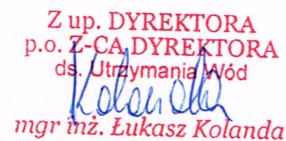 Z up. DYREKTORA
p.o. Z-CA DYREKTORA
ds. Utrzymania Wód
Kolanda
mgr inż. Łukasz Kolanda